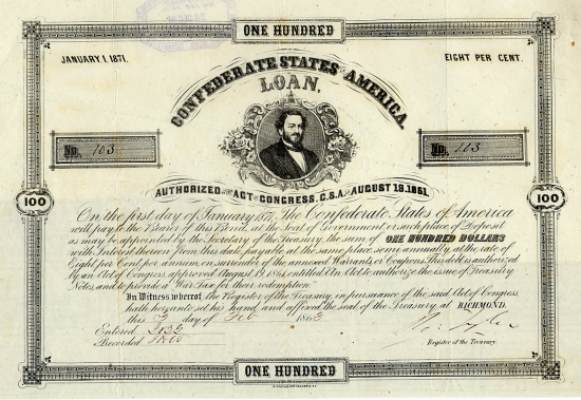 ONE HUNDRED
JANUARY 1, 1871.
EIGHT PER CENT.
CONFEDERATE STATES OF AMERICA.
LOAN,
No. 103
No. 103
AUTHORIZED BY ACT OF CONGRESS, C.S.A. OF AUGUST 19, 1861.
100
100
On the first day of January 1871, The Confederate States of America
will pay to the Bearer of this Bond, at the Seat of Government or such place of Deposit
as may be appointed by the Secretary of the Treasury, the sum of ONE HUNDRED DOLLARS
with Interest thereon from this date, payable at the same place, semi annually, at the rate of
Eight per Cent per annum, on surrender of the annexed Warrants, or Coupons. This debt is authorized
by an Act of Congress approved August 19, 1861, entitled An Act to authorize the issue of Treasury
Notes, and to provide a War Tax for their redemption.
In Witness whereof, the Register of the Treasury, in pursuance of the said Act of Congress
hath hereunto set his hand, and affixed the seal of the Treasury, at RICHMOND,
this day of Feb 1863
Entered
Recorded
Register of the Treasury
ONE HUNDRED